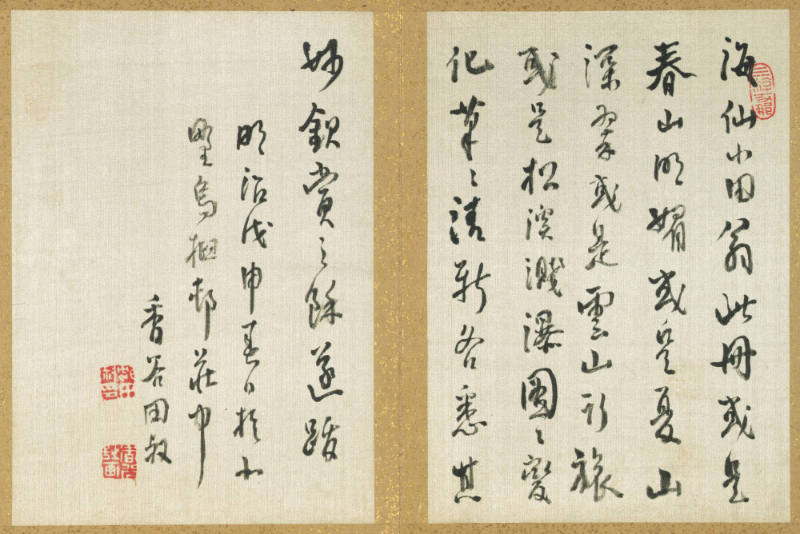 海仙小田翁此冊或是
春山明媚或是夏山
深翠或是雲山行旅
或是松溪濺瀑圖〻變
化筆〻清新各悉其
妙欽賞之餘遂跋
明治戊申春日於
野鳥邨莊中
香谷田叔